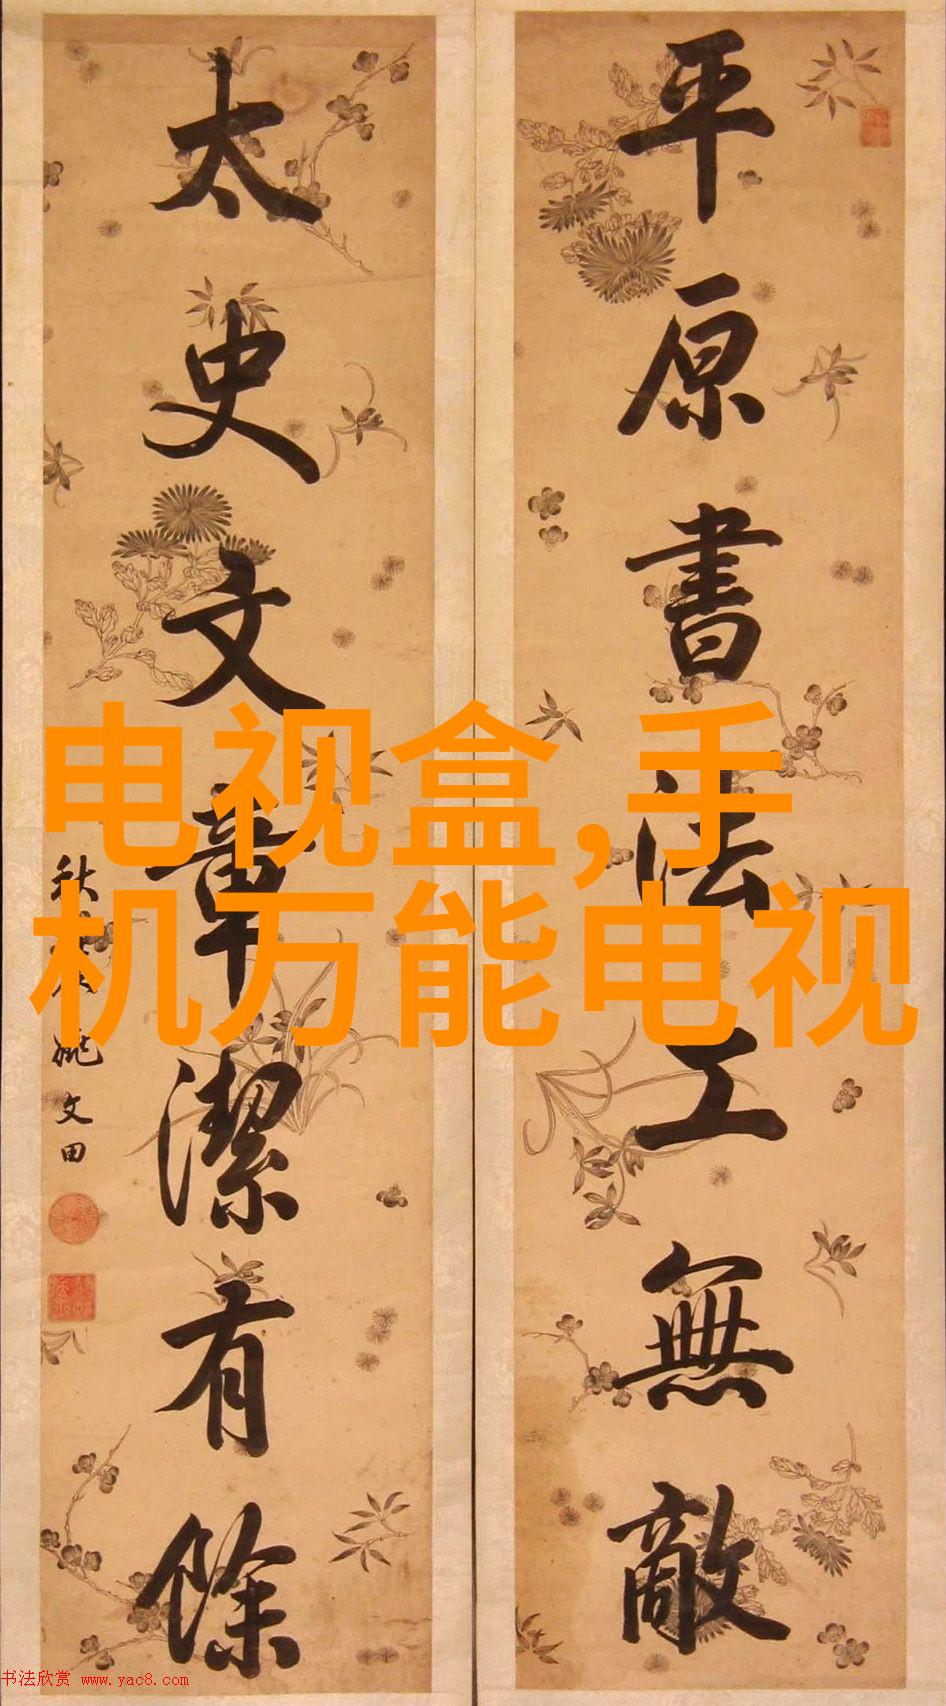 平原書法工無敵
太史文章潔有餘
秋農姚文田
电视盒,手
机万能电视
书法欣赏 www.yac8.com